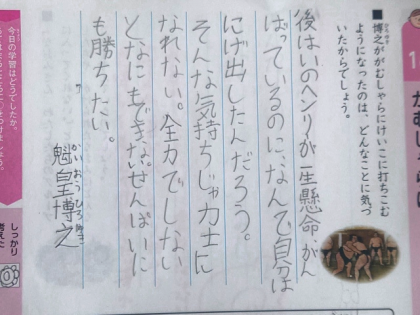 博之ががむしゃらにけいこに打ちこむ
ようになったのは、どんなことに気づ
いたからでしょう。
後はいのヘンリが一生懸命、がん
ばっているのに、なんで自分は
にげ出したんだろう。
そんな気持ちじゃ力士に
なれない。全力でしない
となにもできない。せんぱいに
も勝ちたい。
魁皇博之
かいおうひろ
今日の学習はどうでしたか。
しっかり
考えた